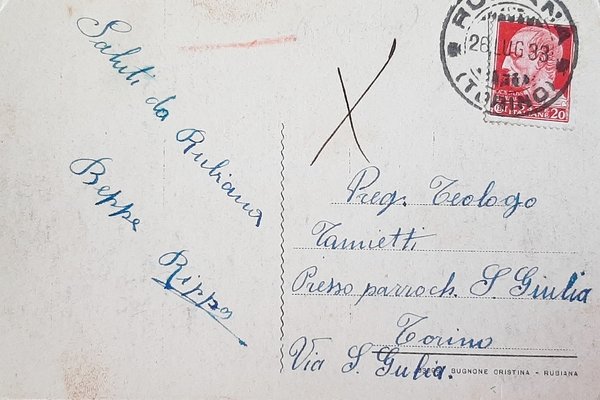 Saluti da Rubiana
Beppe
Rippa
RUBIANA
26 LUG 33
(TORINO)
ITALIANE 20
Preg. Teologo
Tamietti
Presso parroch. S. Giulia
Torino
Via S. Gulia.
BUGNONE CRISTINA - RUBIANA